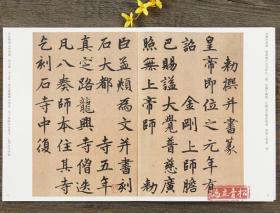 勅撰并書篆
皇帝即位之元年有
詔 金剛上師膽
巴賜謚大覺普慈廣
照無上帝師 勅
臣孟頫為文并書刻
石大都 寺五年
真定路龍興寺僧迭
凡八奏師本住其寺
乞刻石寺中復